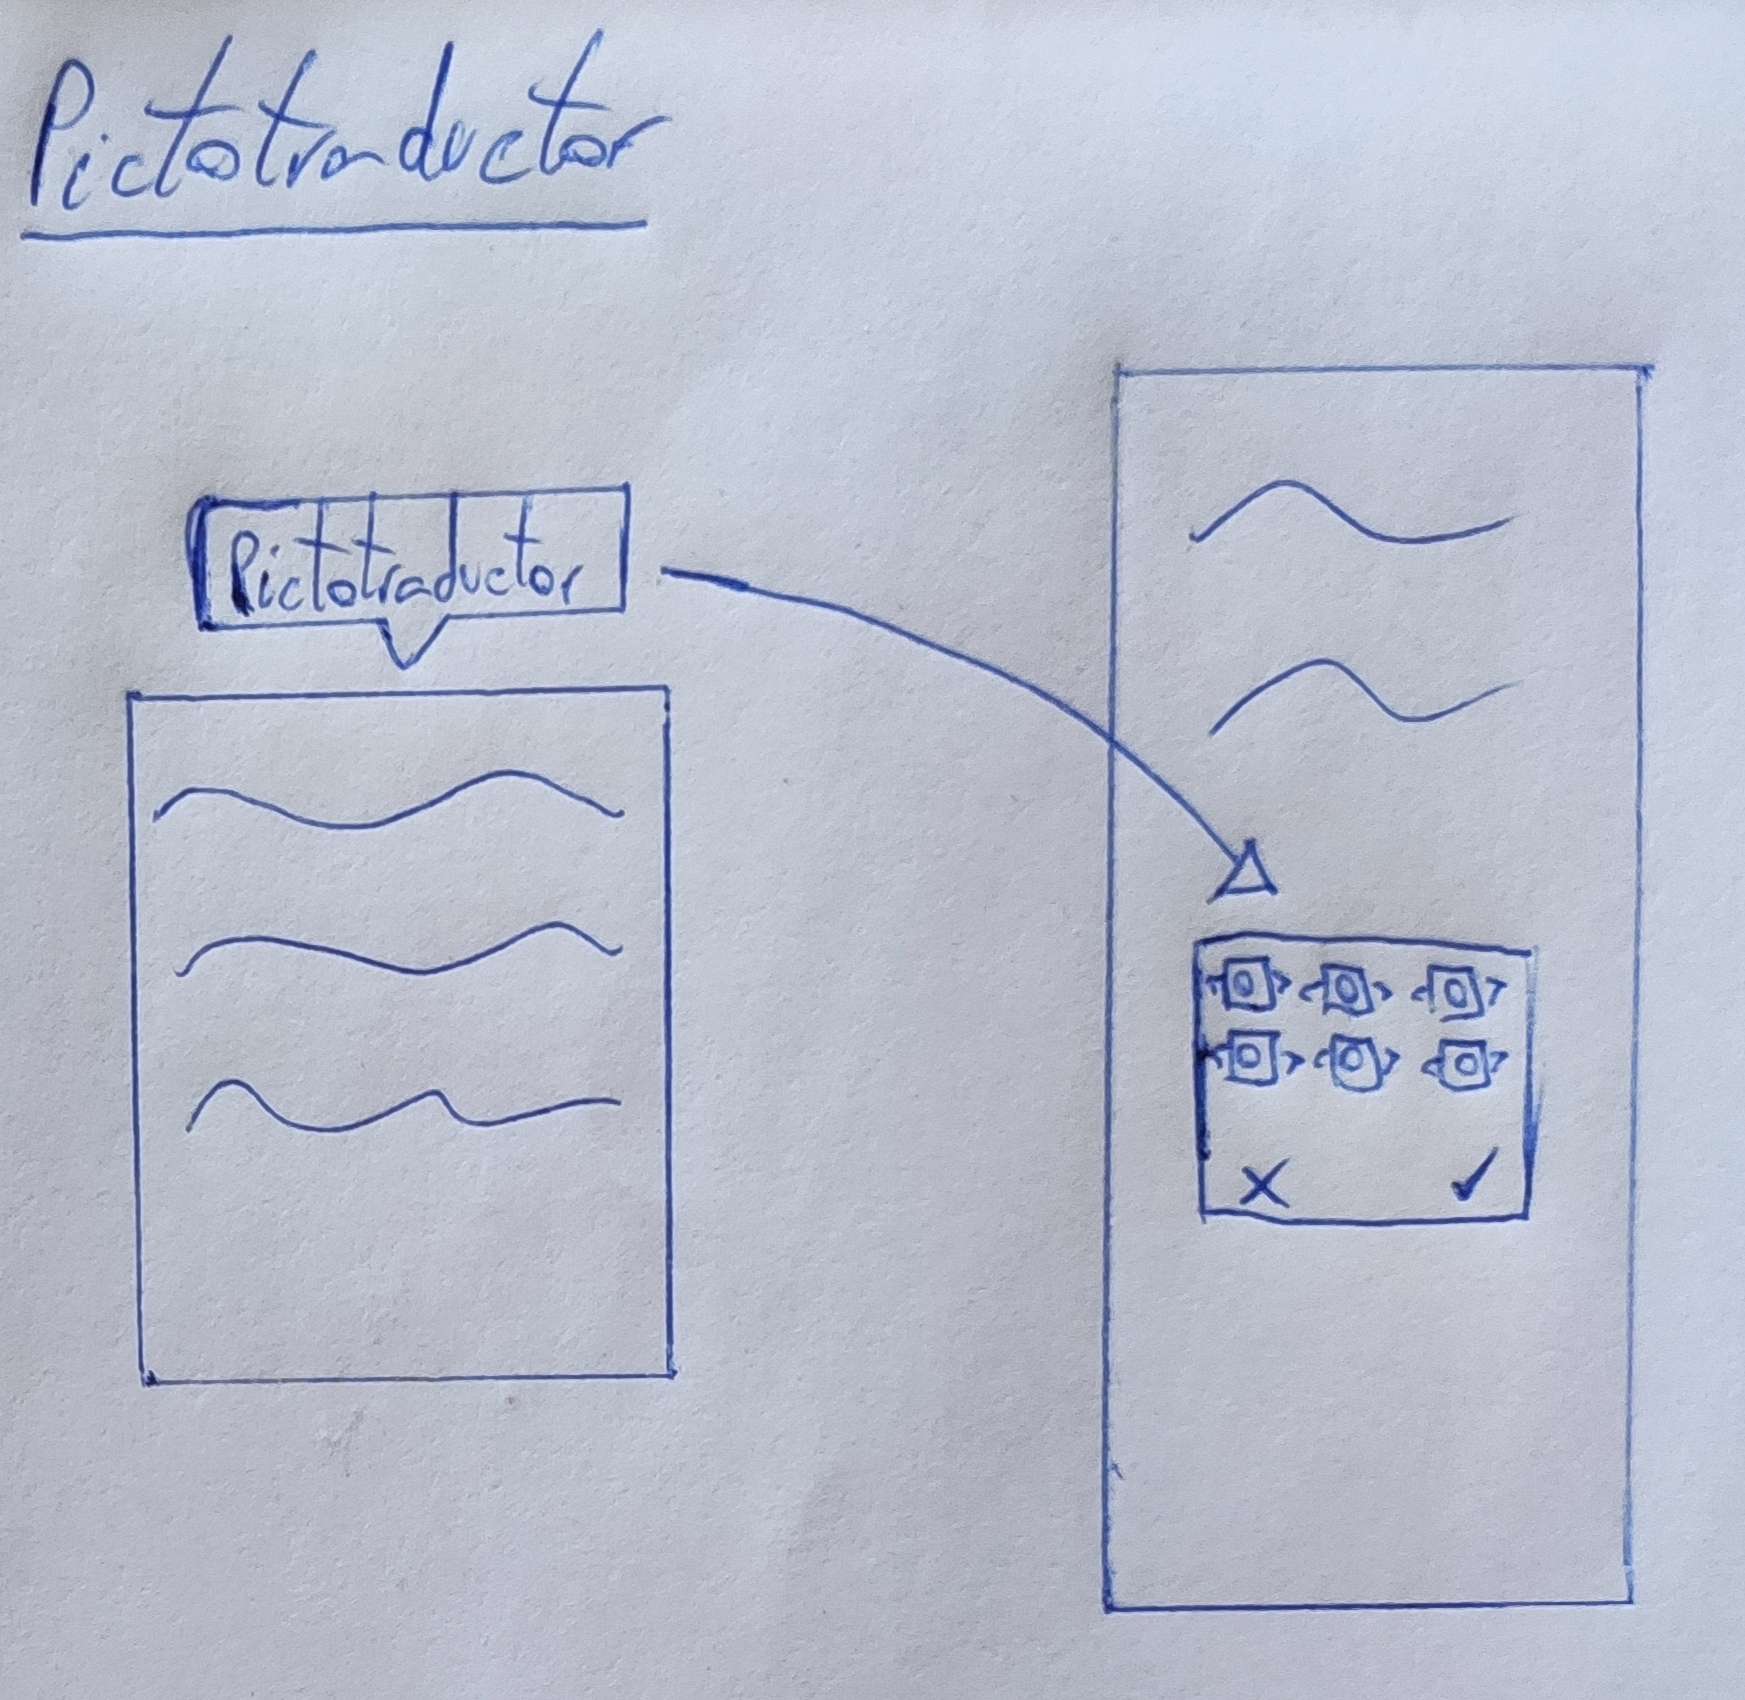 Pictotraductor
Pictotraductor